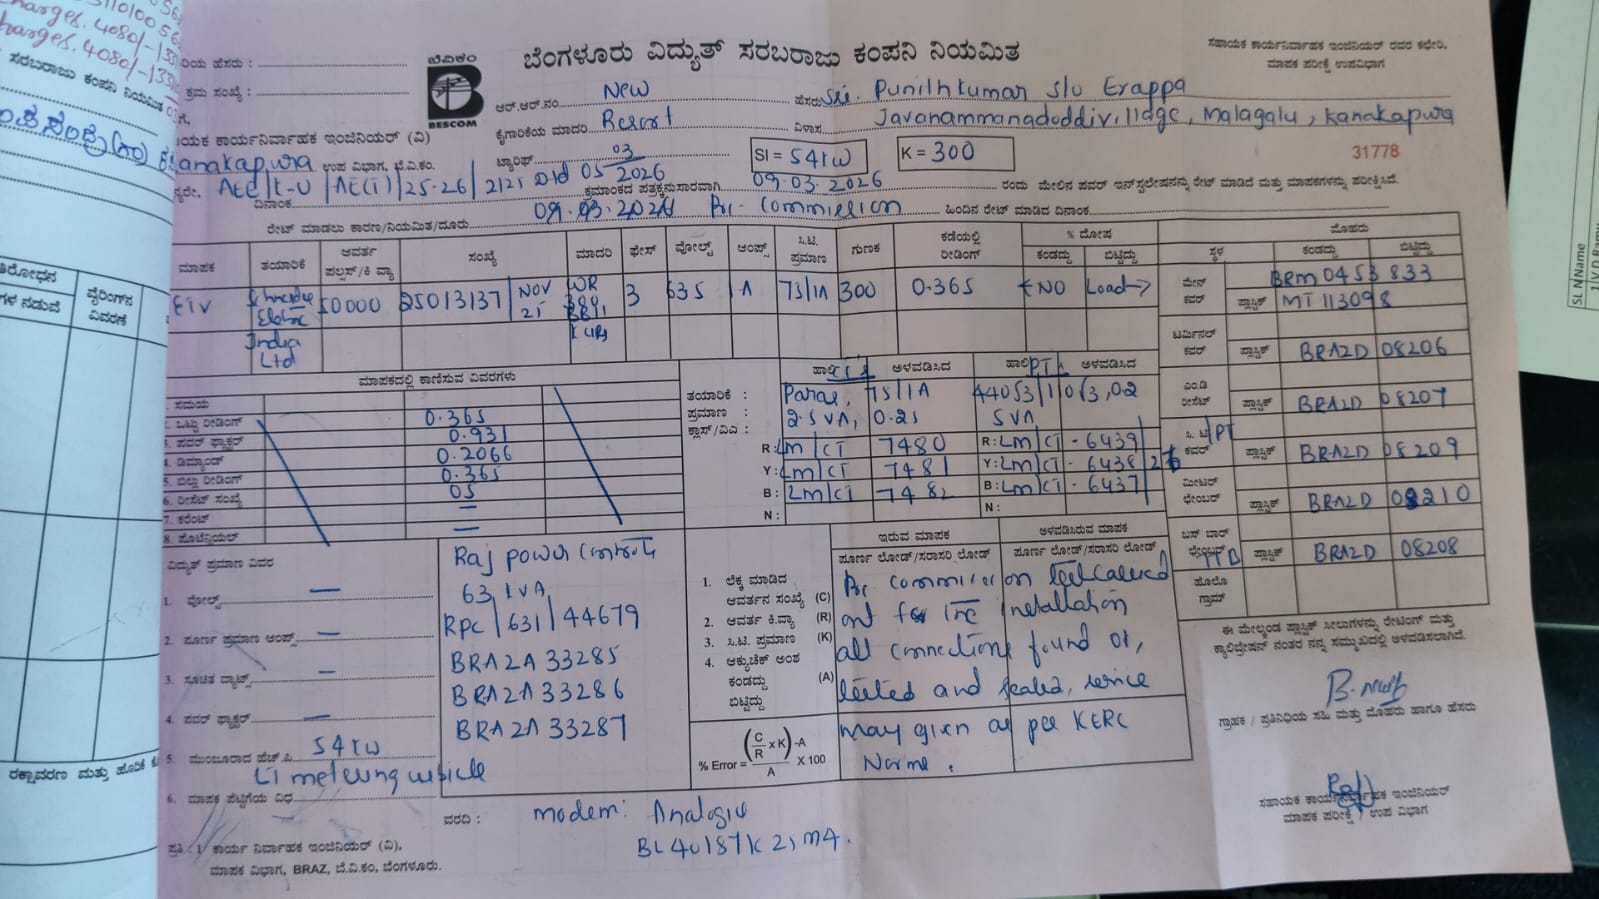 harges. 4080/-
harges. 4080/-133
ಸರಬರಾಜು ಕಂಪನಿ ನಿಯಮಿತ
ಬೆವಿಕಂ
BESCOM
ಬೆಂಗಳೂರು ವಿದ್ಯುತ್ ಸರಬರಾಜು ಕಂಪನಿ ನಿಯಮಿತ
ಸಹಾಯಕ ಕಾರ್ಯನಿರ್ವಾಹಕ ಇಂಜಿನಿಯರ್ ರವರ ಕಛೇರಿ,
ಮಾಪಕ ಪರೀಕ್ಷೆ ಉಪವಿಭಾಗ
ರಿಯ ಹೆಸರು :
ಕ್ರಮ ಸಂಖ್ಯೆ :
ಆರ್.ಆರ್.ನಂ. New
ಹೆಸರು Sri. Punithkumar s/o Erappa
ಕೈಗಾರಿಕೆಯ ಮಾದರಿ Resort
ವಿಳಾಸ Javanammanadoddi village, Malagalu, Kanakapura
ಯಕ ಕಾರ್ಯನಿರ್ವಾಹಕ ಇಂಜಿನಿಯರ್ (ವಿ)
Kanakapura ಉಪ ವಿಭಾಗ, ಬೆ.ವಿ.ಕಂ.
ಟ್ಯಾರಿಫ್
SI = 54KW
K = 300
31778
AEE/K-U/AE(T)/25-26/2125 Dtd 05/03/2026 ಕ್ರಮಾಂಕದ ಪತ್ರಕ್ಕನುಸಾರವಾಗಿ 09.03.2026 ರಂದು ಮೇಲಿನ ಪವರ್ ಇನ್‌ಸ್ಟಲೇಷನನ್ನು ರೇಟ್ ಮಾಡಿದೆ ಮತ್ತು ಮಾಪಕಗಳನ್ನು ಪರೀಕ್ಷಿಸಿದೆ.
ದಿನಾಂಕ
ರೇಟ್ ಮಾಡಲು ಕಾರಣ/ನಿಯಮಿತ/ದೂರು 09.03.2026 Pre-Commission ಹಿಂದಿನ ರೇಟ್ ಮಾಡಿದ ದಿನಾಂಕ
ಮಾಪಕ ತಯಾರಿಕೆ ಆವರ್ತ ಪಲ್ಸಸ್/ಕಿ ವ್ಯಾ ಸಂಖ್ಯೆ ಮಾದರಿ ಫೇಸ್ ವೋಲ್ಟ್ ಆಂಪ್ಸ್ ಸಿ.ಟಿ. ಪ್ರಮಾಣ ಗುಣಕ ಕಡೆಯಲ್ಲಿ ರೀಡಿಂಗ್ % ದೋಷ ಕಂಡದ್ದು ಬಿಟ್ಟಿದ್ದು
ETV Schneider Electric India Ltd 50000 25013137 NOV 25 3 63.5 1A 75/1A 300 0.365 ←NO Load→
ಮೊಹರು
ಸ್ಥಳ ಕಂಡದ್ದು ಬಿಟ್ಟಿದ್ದು
ಮೇನ್ ಕವರ್ BRM 0453 833
ಪ್ಲಾಸ್ಟಿಕ್ MT 113098
ಟರ್ಮಿನಲ್ ಕವರ್ ಪ್ಲಾಸ್ಟಿಕ್ BRA2D 08206
ಎಂ.ಡಿ ರೀಸೆಟ್ ಪ್ಲಾಸ್ಟಿಕ್ BRA2D 08207
ಸಿ. ಟಿ/PT ಕವರ್ ಪ್ಲಾಸ್ಟಿಕ್ BRA2D 08209
ಮೀಟರ್ ಛೇಂಬರ್ ಪ್ಲಾಸ್ಟಿಕ್ BRA2D 08210
ಬಸ್ ಬಾರ್ ಛೇಂಬರ್ TTB ಪ್ಲಾಸ್ಟಿಕ್ BRA2D 08208
ಹೊಲೊ ಗ್ರಾಮ್
ಮಾಪಕದಲ್ಲಿ ಕಾಣಿಸುವ ವಿವರಗಳು
1. ಸಮಯ
2. ಒಟ್ಟು ರೀಡಿಂಗ್ 0.365
3. ಪವರ್ ಫ್ಯಾಕ್ಟರ್ 0.931
4. ಡಿಮ್ಯಾಂಡ್ 0.2066
5. ಬಿಲ್ಡು ರೀಡಿಂಗ್ 0.365
6. ರೀಸೆಟ್ ಸಂಖ್ಯೆ 05
7. ಕರೆಂಟ್ —
8. ಪೊಟೆನ್ಶಿಯಲ್ —
ಹಾಲಿ CTs ಅಳವಡಿಸಿದ ಹಾಲಿ PTs ಅಳವಡಿಸಿದ
ತಯಾರಿಕೆ : 75/1A
ಪ್ರಮಾಣ : 2.5VA, 5VA
ಕ್ಲಾಸ್/ವಿಎ :
R: LM/CT 7480 R: LM/CT-6439
Y: LM/CT 7481 Y: LM/CT-6438
B: LM/CT 7482 B: LM/CT-6437
N: N:
ವಿದ್ಯುತ್ ಪ್ರಮಾಣ ವಿವರ
1. ವೋಲ್ಟ್ —
2. ಪೂರ್ಣ ಪ್ರಮಾಣ ಆಂಪ್ಸ್. —
3. ಸೂಚಿತ ವ್ಯಾಟ್ಸ್ —
4. ಪವರ್ ಫ್ಯಾಕ್ಟರ್ —
5. ಮಂಜೂರಾದ ಹೆಚ್.ಪಿ. 54KW
LT metering cubicle
6. ಮಾಪಕ ಪೆಟ್ಟಿಗೆಯ ವಿಧ
Raj power controls
63 KVA
RPC/631/44679
BRA2A 33285
BRA2A 33286
BRA2A 33287
ಇರುವ ಮಾಪಕ ಅಳವಡಿಸಿರುವ ಮಾಪಕ
ಪೂರ್ಣ ಲೋಡ್/ಸರಾಸರಿ ಲೋಡ್ ಪೂರ್ಣ ಲೋಡ್/ಸರಾಸರಿ ಲೋಡ್
1. ಲೆಕ್ಕ ಮಾಡಿದ ಆವರ್ತನ ಸಂಖ್ಯೆ (C)
2. ಆವರ್ತ ಕಿ.ವ್ಯಾ (R)
3. ಸಿ.ಟಿ. ಪ್ರಮಾಣ (K)
4. ಆಕ್ಯುಚೆಕ್ ಅಂಶ ಕಂಡದ್ದು (A) ಬಿಟ್ಟಿದ್ದು
% Error = (C/R x K) -A / A X 100
Pre commission test carried
out for the installation
all connections found ok,
tested and sealed, service
may given as per KERC
Norms.
ಈ ಮೇಲ್ಕಂಡ ಪ್ಲಾಸ್ಟಿಕ್ ಸೀಲುಗಳನ್ನು ರೇಟಿಂಗ್ ಮತ್ತು
ಕ್ಯಾಲಿಬ್ರೇಷನ್ ನಂತರ ನನ್ನ ಸಮ್ಮುಖದಲ್ಲಿ ಅಳವಡಿಸಲಾಗಿದೆ.
ಗ್ರಾಹಕ / ಪ್ರತಿನಿಧಿಯ ಸಹಿ ಮತ್ತು ಮೊಹರು ಹಾಗೂ ಹೆಸರು
ಸಹಾಯಕ ಕಾರ್ಯನಿರ್ವಾಹಕ ಇಂಜಿನಿಯರ್
ಮಾಪಕ ಪರೀಕ್ಷೆ ಉಪ ವಿಭಾಗ
ವರದಿ : modem: Analogic
BL40187K25M4.
ಪ್ರತಿ : 1. ಕಾರ್ಯ ನಿರ್ವಾಹಕ ಇಂಜಿನಿಯರ್ (ವಿ),
ಮಾಪಕ ವಿಭಾಗ, BRAZ, ಬೆ.ವಿ.ಕಂ, ಬೆಂಗಳೂರು.
ವೈರಿಂಗ್‌ನ ವಿವರಣೆ
SL.NName